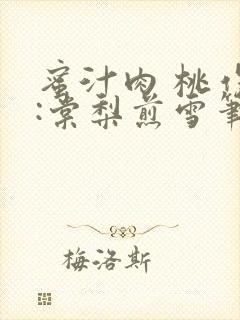 蜜汁肉桃作
:棠梨煎雪筆
梅洛斯